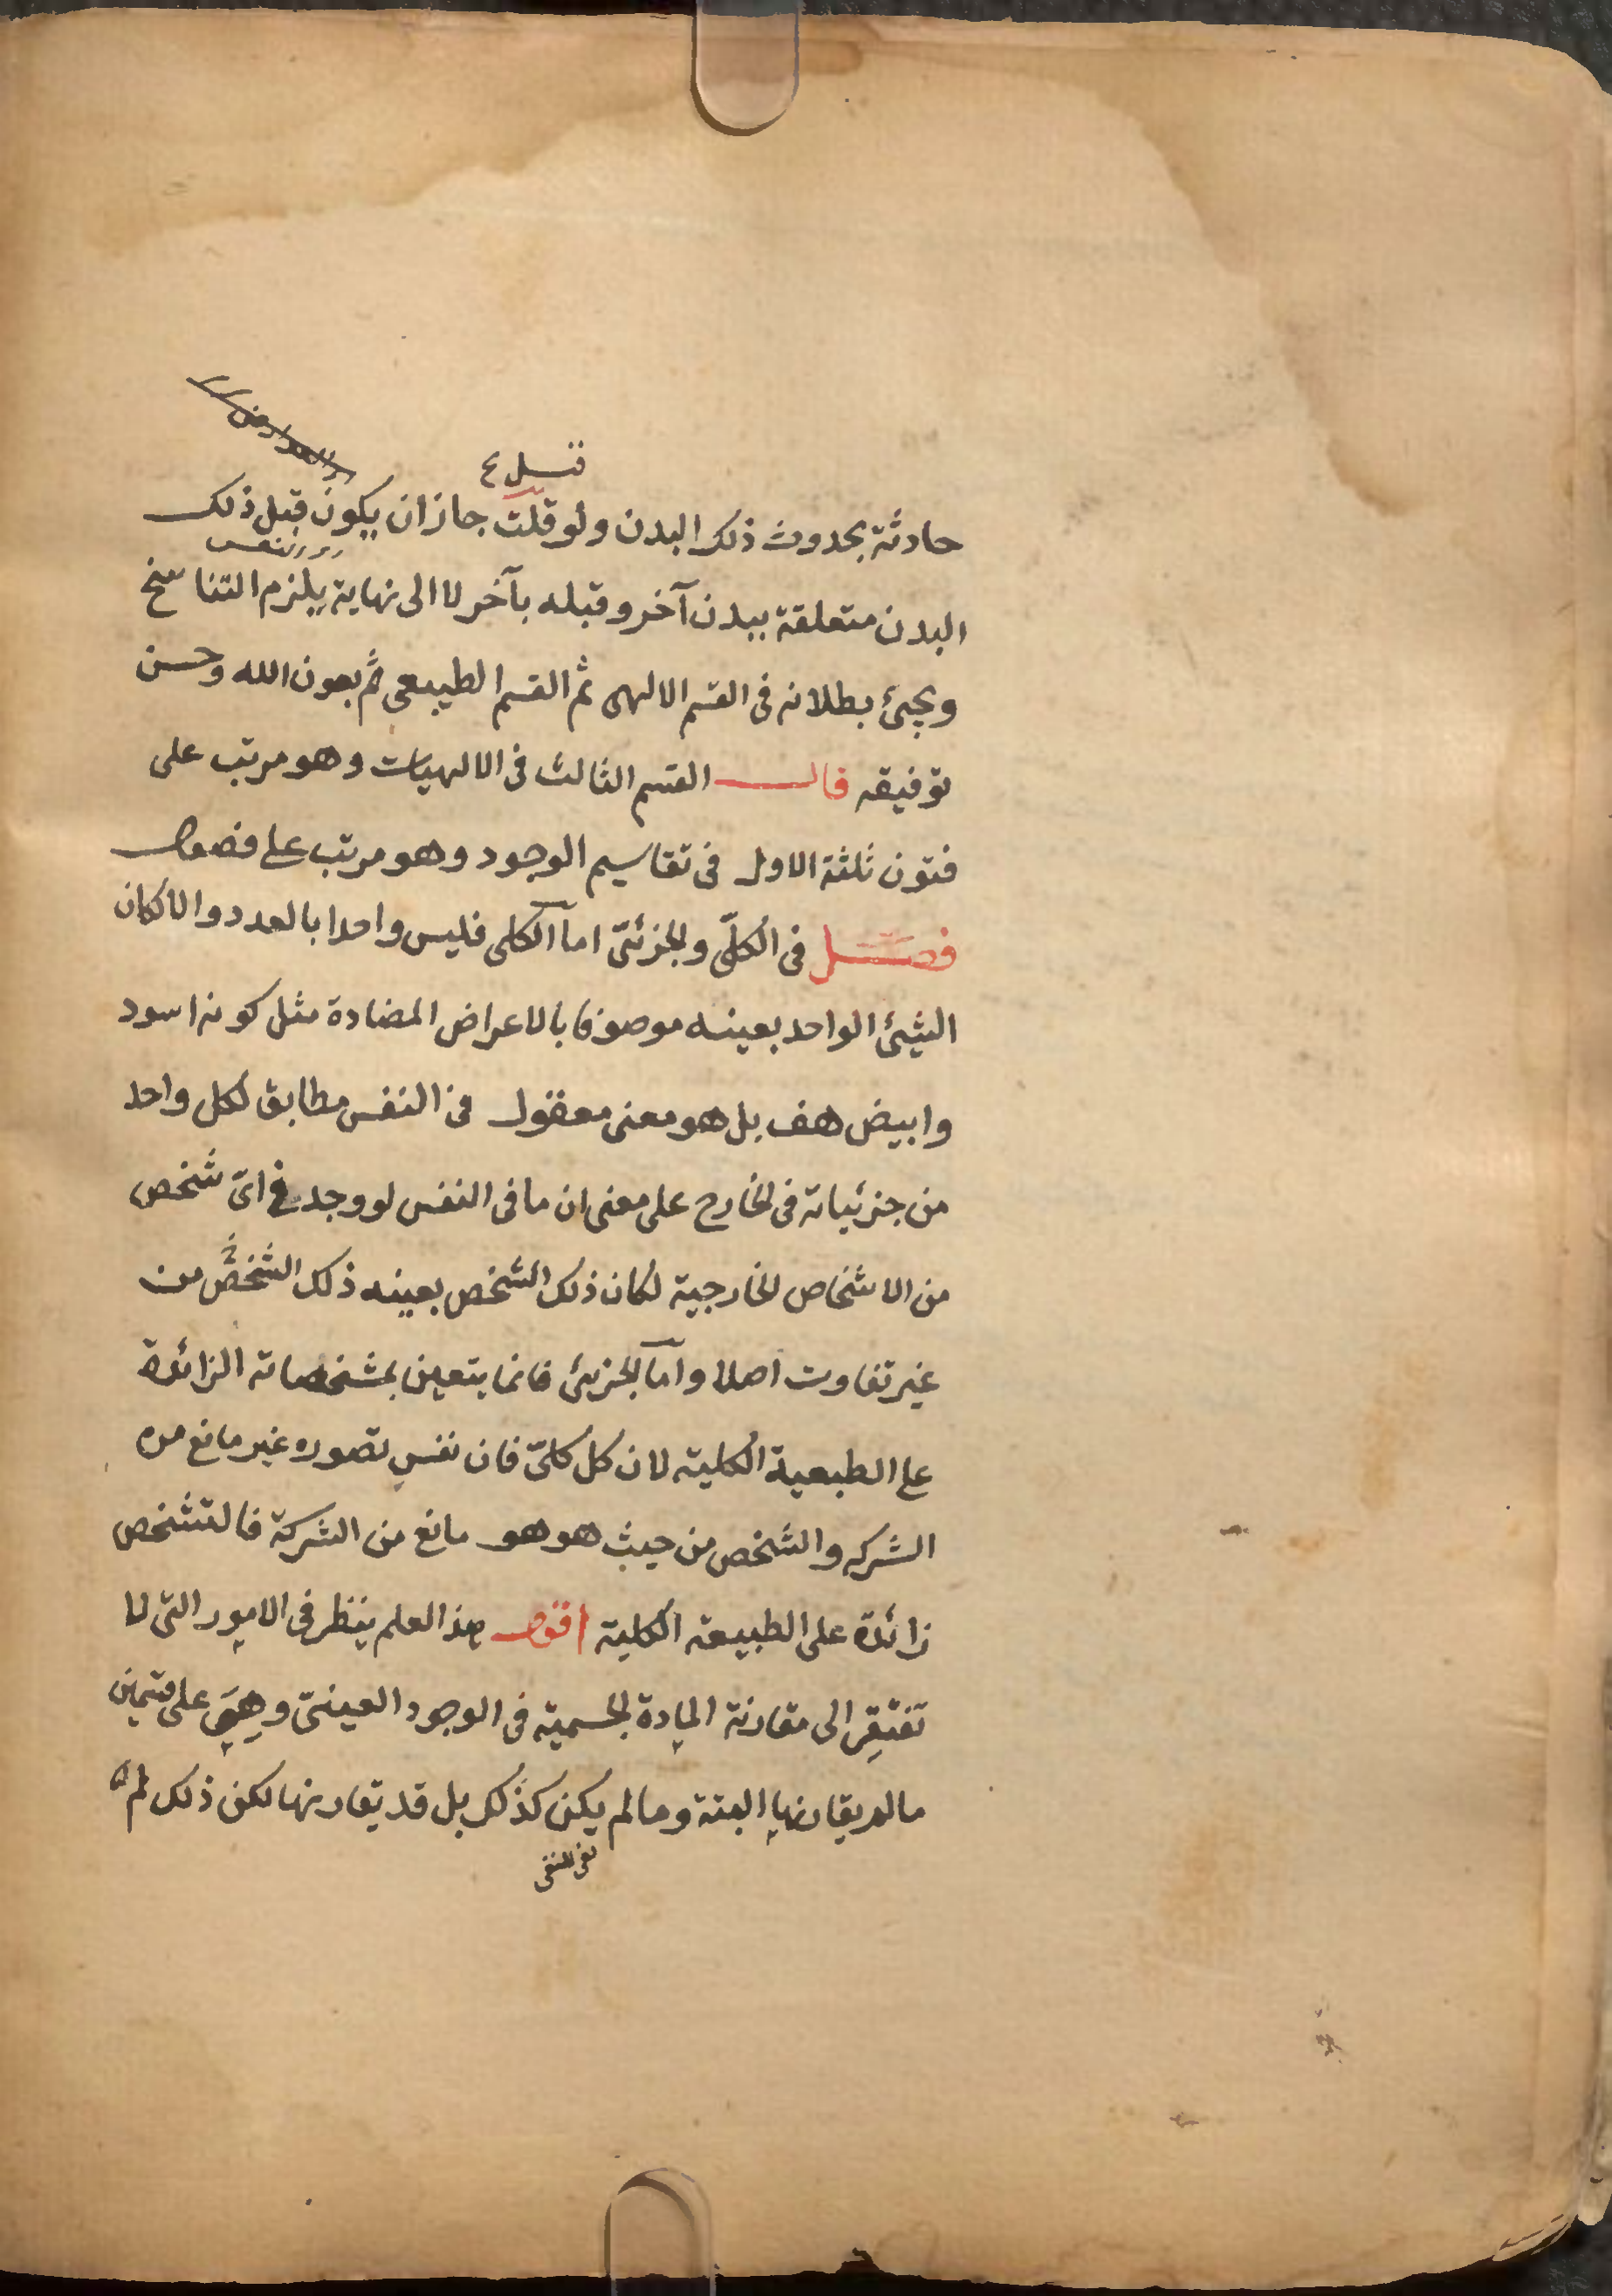 قيل ع
حادثة بحدوث ذلك البدن ولو قلت جاز ان يكون قبل ذلك
البدن متعلقة ببدن آخر وقبله بآخر لا الى نهاية يلزم التناسخ
ويجئ بطلانه فى القسم الالهى ثم القسم الطبيعى ثم بعون الله وحسن
توفيقه قال القسم الثالث فى الالهيات وهو مرتب على
فنون ثلثة الاول فى تقاسيم الوجود وهو مرتب على فصول
فصل فى الكلّى والجزئىّ اما الكلى فليس واحدا بالعدد والا لكان
الشئ الواحد بعينه موصوفا بالاعراض المضادة مثل كونه اسود
وابيض هف بل هو معنى معقول فى النفس مطابق لكل واحد
من جزئياته فى الخارج على معنى ان ما فى النفس لو وجد فى اىّ شخص
من الاشخاص الخارجية لكان ذلك الشخص بعينه ذلك الشخص من
غير تفاوت اصلا واما الجزئى فانما يتعين بمشخصاته الزائدة
على الطبعية الكلية لان كل كلىّ فان نفس تصوره غير مانع من
الشركه والشخص من حيث هو هو مانع من الشركة فالتشخص
زائدة على الطبيعة الكلية اقول هذا العلم ينظر فى الامور التى لا
تفتقر الى مقارنة المادة الجسمية فى الوجود العينىّ وهى على قسمين
مالم يقارنها البتة وما لم يكن كذلك بل قد يقارنها لكن ذلك لم
نفى النفى